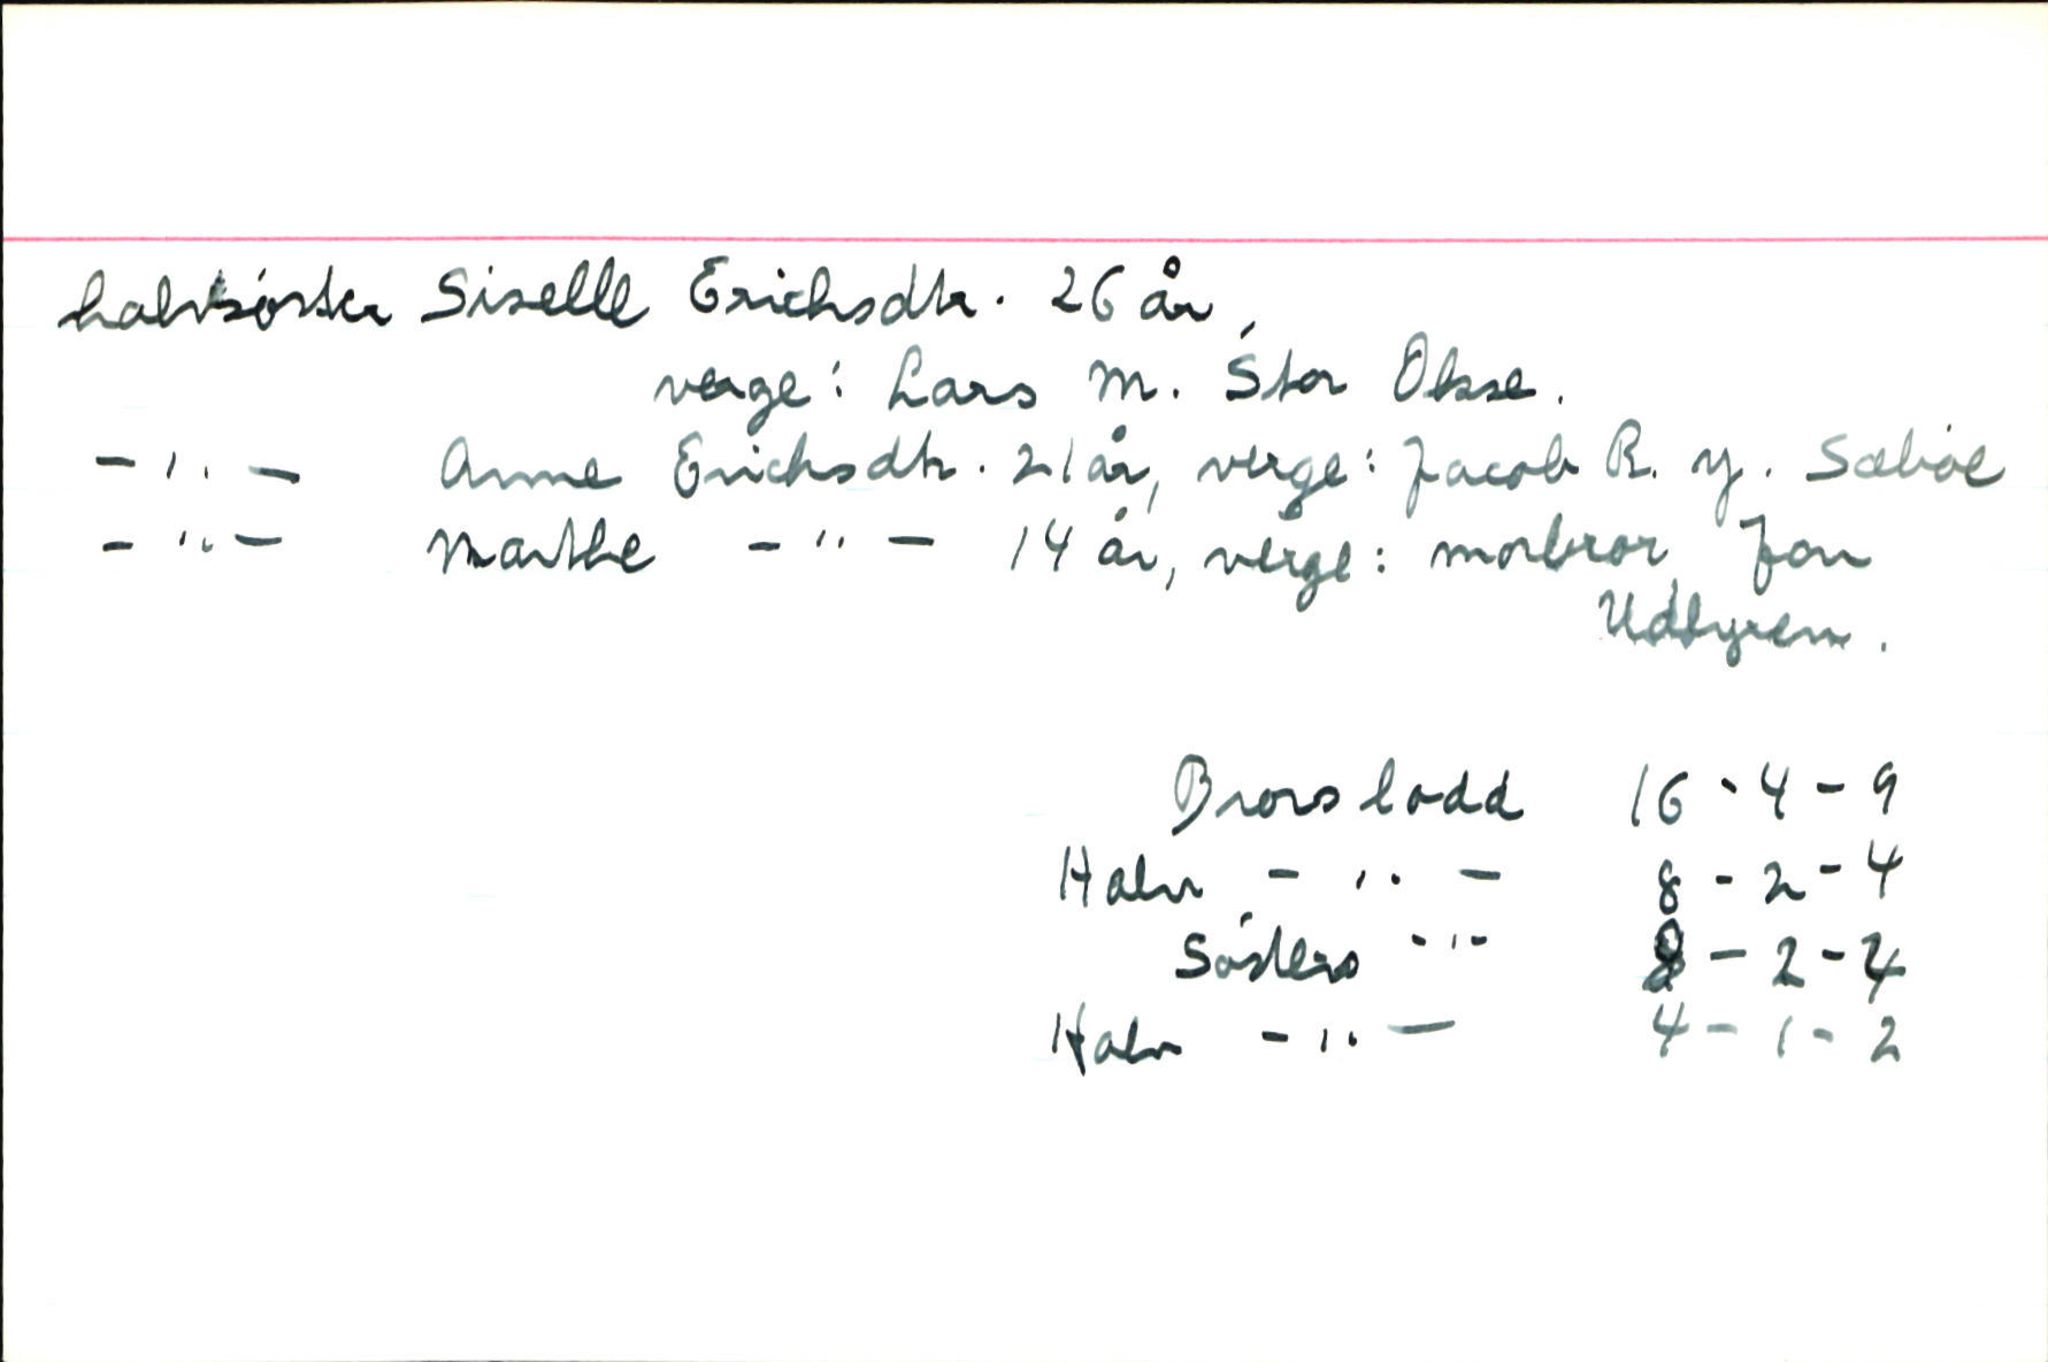 halvsöster Siselle Erichsdtr. 26 år,
verge: Lars M. Stor Oksse.
- " - Anne Erichsdtr. 21 år, verge: Jacob R. y. Sæböe
- " - Marthe - " - 14 år, verge: morbror Jon
Udbyren.
Brors lodd 16 - 4 - 9
Halv - " - 8 - 2 - 4
Sösters - " - 8 - 2 - 4
Halv - " - 4 - 1 - 2